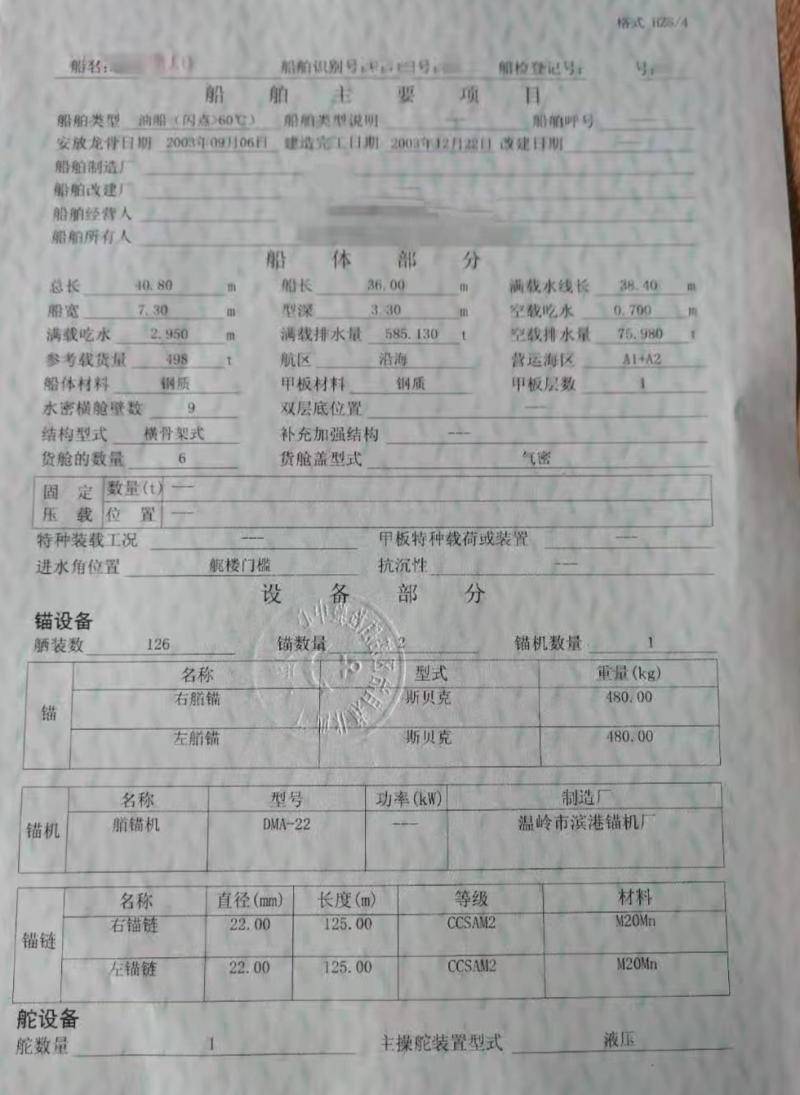 格式 HZS/4
船名: 船舶识别号: 船检登记号:
船舶主要项目
船舶类型 油船（闪点>60℃） 船舶类型说明 —— 船舶呼号 ——
安放龙骨日期 2003年09月06日 建造完工日期 2003年12月22日 改建日期 ——
船舶制造厂
船舶改建厂
船舶经营人
船舶所有人
船体部分
总长 40.80 m 船长 36.00 m 满载水线长 38.40 m
船宽 7.30 m 型深 3.30 m 空载吃水 0.700 m
满载吃水 2.950 m 满载排水量 585.130 t 空载排水量 75.980 t
参考载货量 498 t 航区 沿海 营运海区 A1+A2
船体材料 钢质 甲板材料 钢质 甲板层数 1
水密横舱壁数 9 双层底位置 ——
结构型式 横骨架式 补充加强结构 ——
货舱的数量 6 货舱盖型式 气密
固定 数量(t) ——
压载 位置 ——
特种装载工况 —— 甲板特种载荷或装置 ——
进水角位置 艉楼门槛 抗沉性 ——
设备部分
锚设备
舾装数 126 锚数量 2 锚机数量 1
名称 型式 重量(kg)
锚
右艏锚 斯贝克 480.00
左艏锚 斯贝克 480.00
名称 型号 功率(kW) 制造厂
锚机 艏锚机 DMA-22 —— 温岭市滨港锚机厂
名称 直径(mm) 长度(m) 等级 材料
锚链
右锚链 22.00 125.00 CCSAM2 M20Mn
左锚链 22.00 125.00 CCSAM2 M20Mn
舵设备
舵数量 1 主操舵装置型式 液压